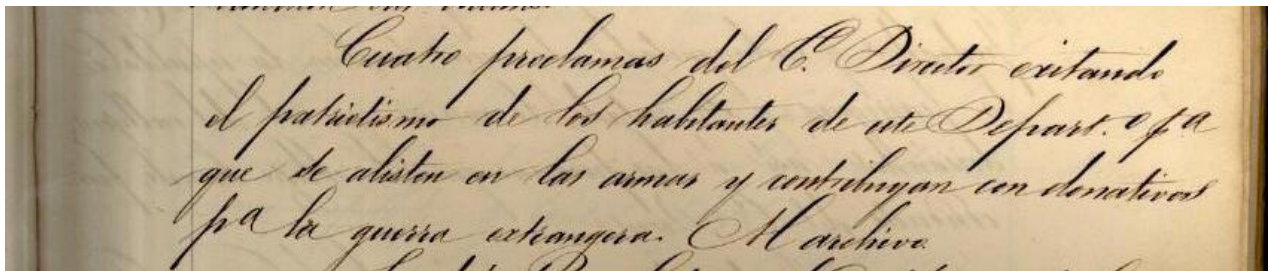 Cuatro proclamas del C. Director exitando
el patriotismo de los habitantes de este Depart.o pa
que se alisten en las armas y contribuyan con donativos
pa la guerra extrangera. Al archivo.